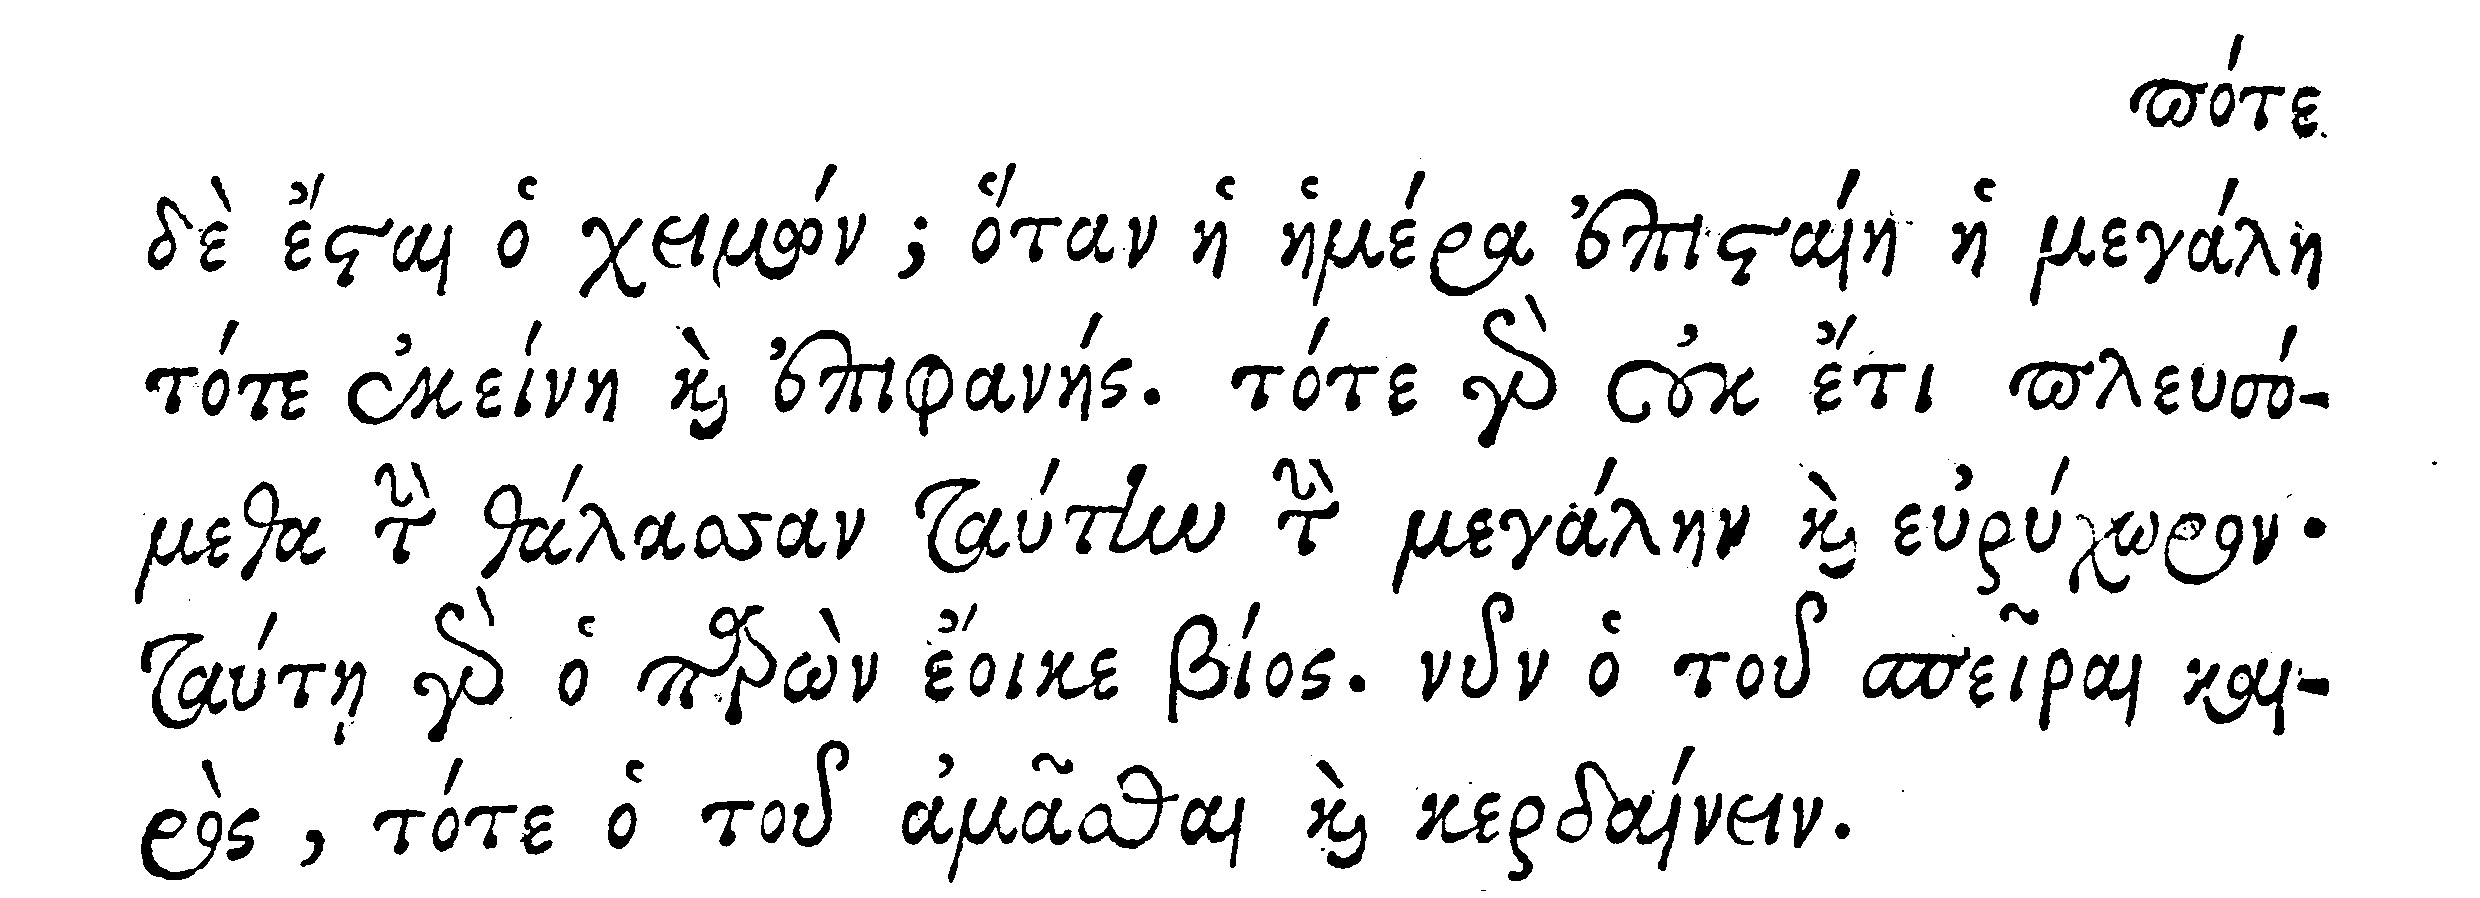 πότε
δὲ ἔσται ὁ χειμών; ὅταν ἡ ἡμέρα ἐπισταίη ἡ μεγάλη
τότε ἐκείνη καὶ ἐπιφανής. τότε γὰρ οὐκ ἔτι πλευσό-
μεθα τὴν θάλασσαν ταύτην τὴν μεγάλην καὶ εὐρύχωρον·
ταύτῃ γὰρ ὁ παρὼν ἔοικε βίος. νῦν ὁ τοῦ σπεῖραι και-
ρὸς, τότε ὁ τοῦ ἀμᾶσθαι καὶ κερδαίνειν.